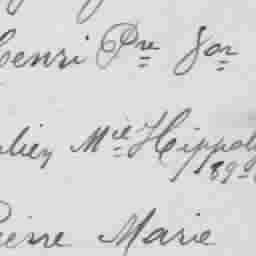 Henri Pre Jor
ulien Mie Hippoly
89-
Pierre Marie